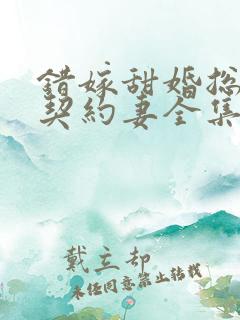 錯嫁甜婚总
契約妻全集
戴立却
未任同意禁止转载